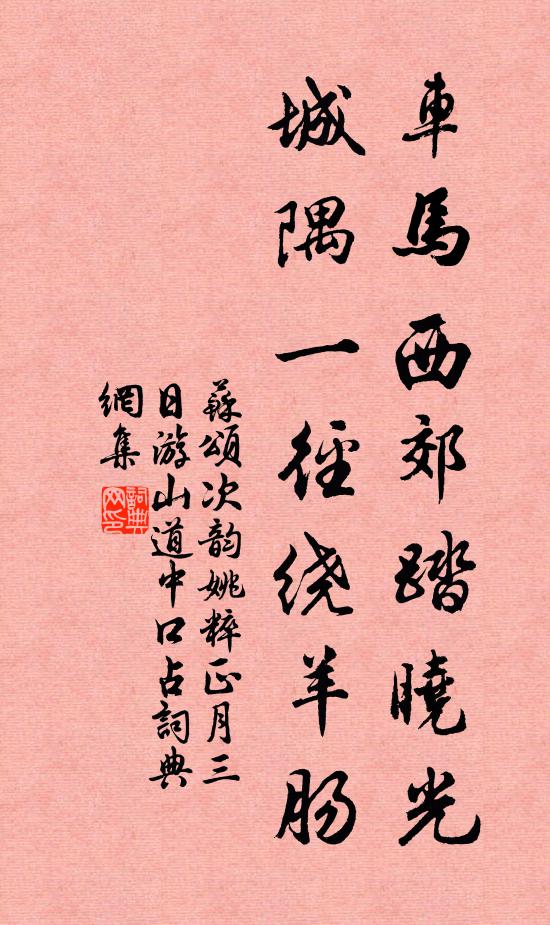 車馬西郊踏曉光
城隅一徑绕羊肠
蘇頌次韵姚粹正月三
日游山道中口占詞典
網集
詞典
网印